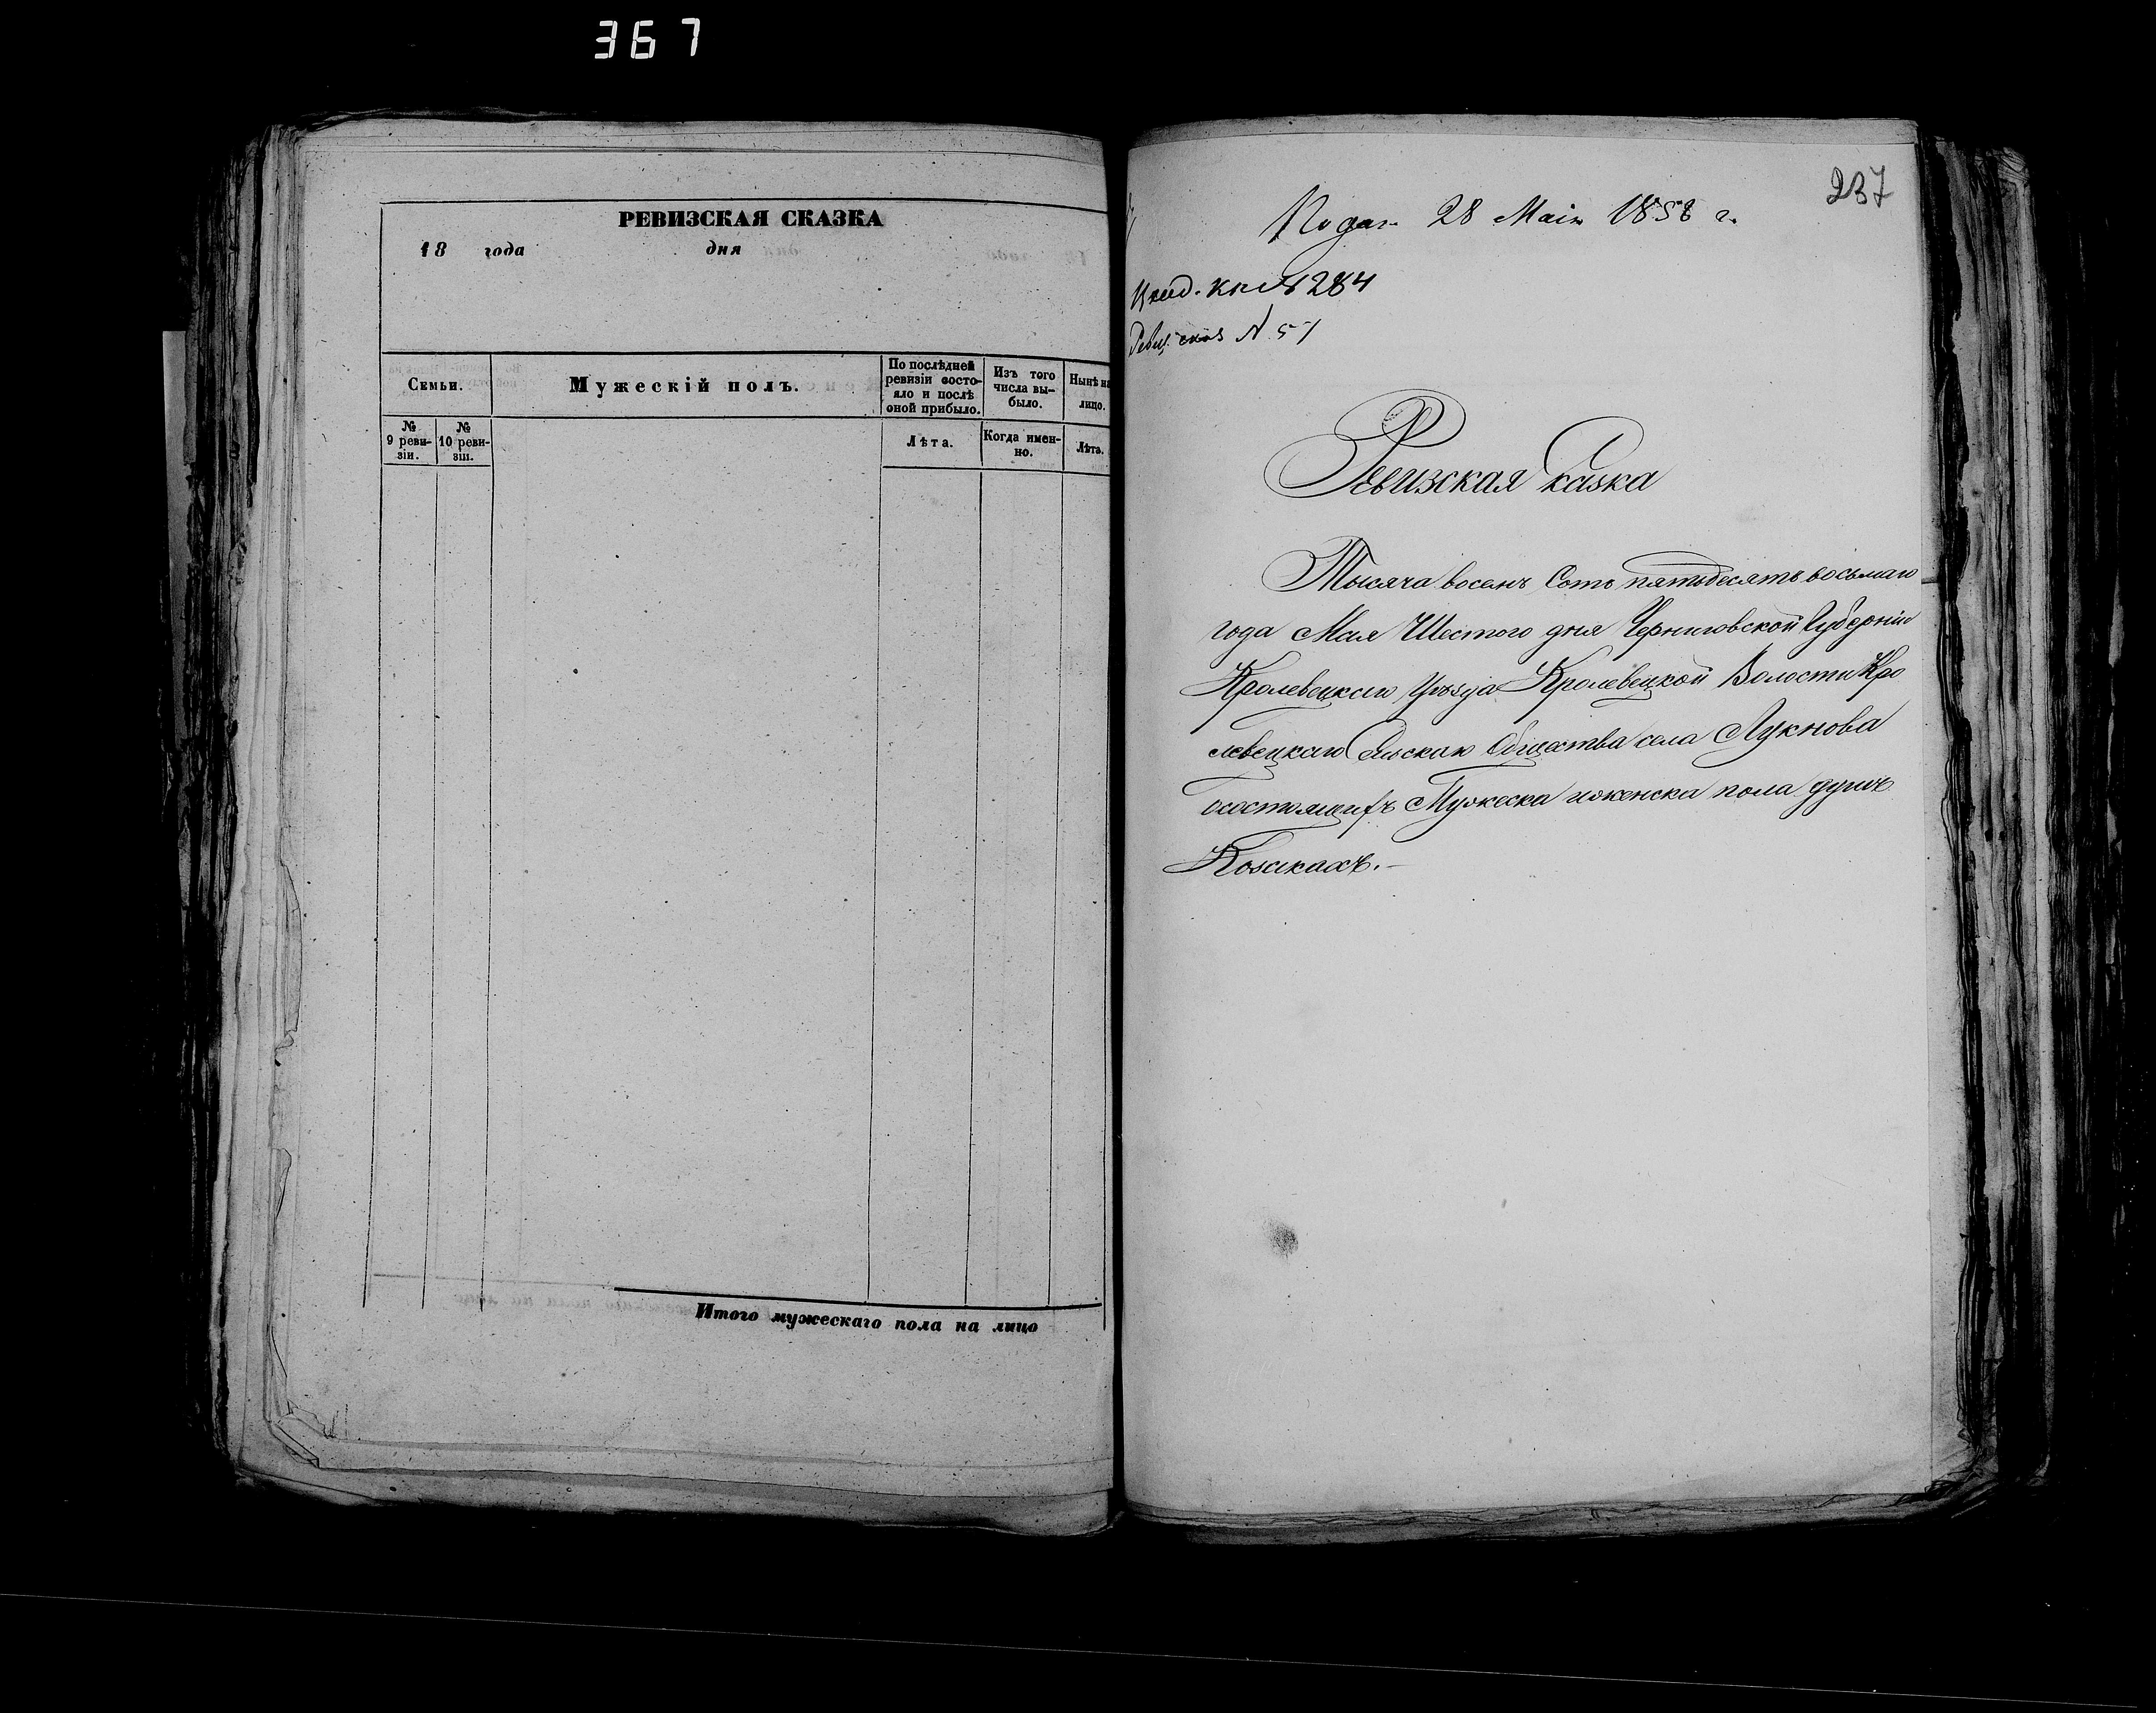 367
РЕВИЗСКАЯ СКАЗКА
18 года дня
Семьи.
Мужескій полъ.
По послѣдней ревизіи состо-
яло и послѣ
оной прибыло.
Изъ того
числа вы-
было.
Нынѣ на
лицо.
№
9 реви-
зіи.
№
10 реви-
зіи.
Лѣта.
Когда имен-
но.
Лѣта.
Итого мужескаго пола на лицо
237
Подан 28 Маія 1858 г.
кн № 1284
Ревиз. сказ N. 57
Ревизская Сказка
Тысяча восемь Сотъ пятьдесятъ восьмаго
года Мая Шестого дня Черниговской Губерніи
Кролевецкаго Уѣзда Кролевецкой Волости Кро
левецкаго Сельскаго Общества села Лукнова
осостоящихъ Мужеска иженска пола душъ
Козакахъ.–